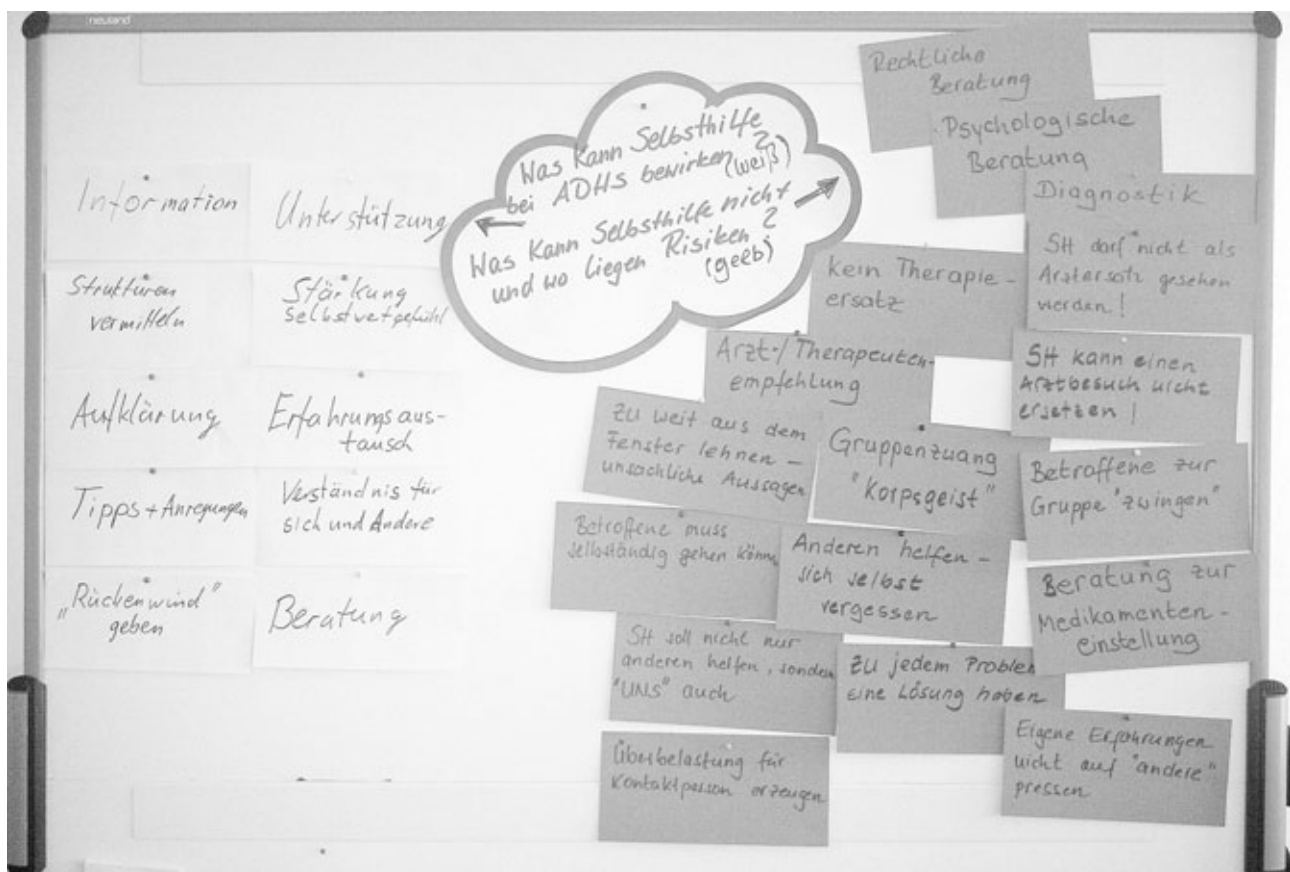 neuland
Was kann Selbsthilfe
bei ADHS bewirken?
(weiß)
Was kann Selbsthilfe nicht
und wo liegen Risiken?
(gelb)
Information
Unterstützung
Strukturen
vermitteln
Stärkung
Selbstwertgefühl
Aufklärung
Erfahrungsaus-
tausch
Tipps + Anregungen
Verständnis für
sich und Andere
„Rückenwind"
geben
Beratung
Rechtliche
Beratung
Psychologische
Beratung
Diagnostik
SH darf nicht als
Arztersatz gesehen
werden!
kein Therapie-
ersatz
Arzt-/Therapeuten-
empfehlung
SH kann einen
Arztbesuch nicht
ersetzen!
Zu weit aus dem
Fenster lehnen –
unsachliche Aussagen
Gruppenzwang
"Korpsgeist"
Betroffene zur
Gruppe "zwingen"
Betroffene muss
selbständig gehen könn
Anderen helfen –
sich selbst
vergessen
Beratung zur
Medikamenten-
einstellung
SH soll nicht nur
anderen helfen, sondern
"UNS" auch
Zu jedem Problem
eine Lösung haben
Überbelastung für
Kontaktperson erzeugen
Eigene Erfahrungen
nicht auf "andere"
pressen